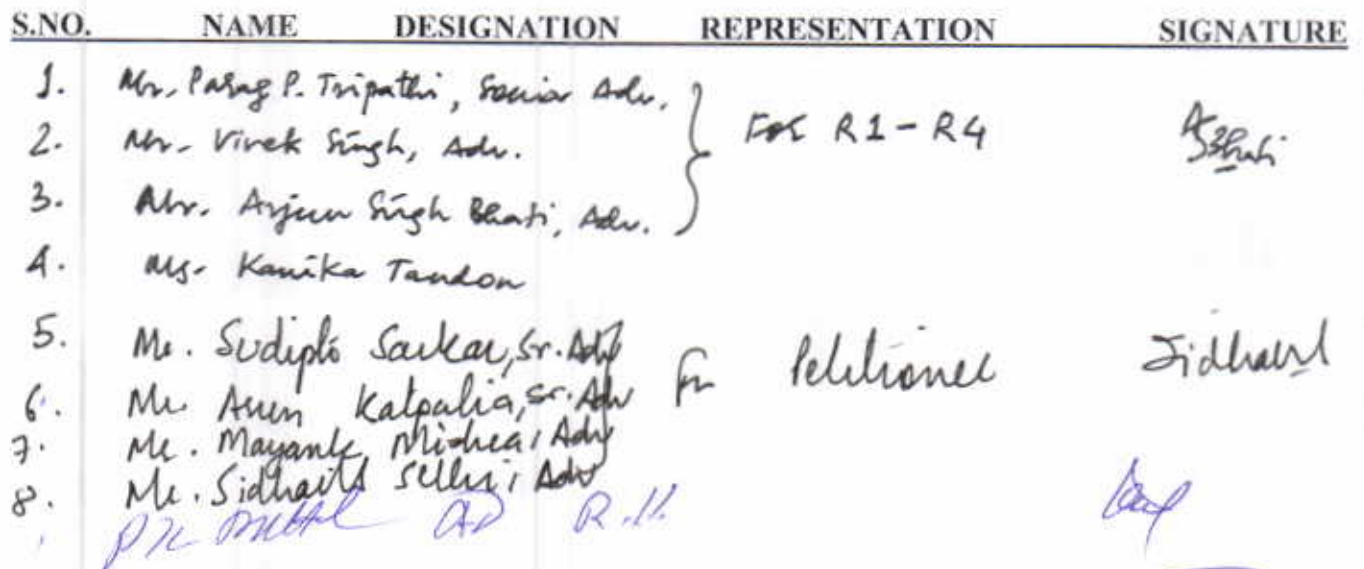 S.NO. NAME DESIGNATION REPRESENTATION SIGNATURE
1. Mr. Parag P. Tripathi, Senior Adv.
2. Mr. Vivek Singh, Adv. For R1-R4
3. Mr. Arjun Singh Bhati, Adv.
4. Ms. Kanika Tandon
5. Mr. Sudipto Sarkar, Sr. Adv for Petitioner Sidharth
6. Mr. Arun Katpalia, Sr. Adv
7. Mr. Mayank Mishra, Adv
8. Mr. Sidharth Sethi, Adv
P K Mittal